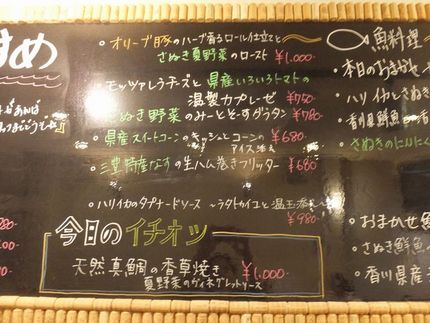 すめ
オリーブ豚のハーブ香るロール仕立てと
さぬき夏野菜のロースト ¥1,000-
モッツァレラチーズと県産いろいろトマトの
温製カプレーゼ ¥750
さぬき野菜のみーとそーすグラタン ¥780
県産スイートコーンのキッシュとコーンの
アイス添え ¥680
三豊特産なすの生ハム巻きフリッター ¥680-
ハリイカのタプナードソース 〜ラタトゥイユと温玉添え〜
¥980
今日のイチオシ
天然真鯛の香草焼き ¥1,000-
夏野菜のヴィネグレットソース
魚料理
本日のおまかせ
ハリイカとさぬき
香川県産鮮魚
さぬきのにんにく
おまかせ鮮
さぬき鮮魚
香川県産